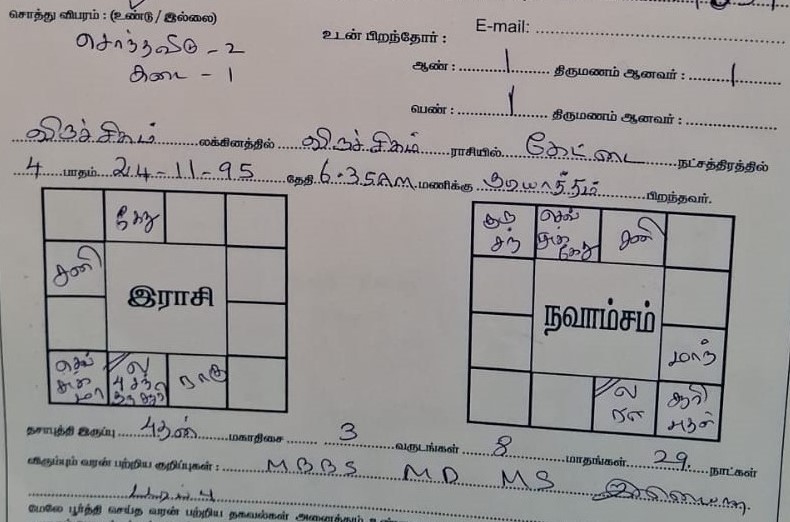 சொத்து விபரம் : (உண்டு / இல்லை)
சொந்தவீடு - 2
கடை - 1
E-mail:
உடன் பிறந்தோர் :
ஆண் : 1 திருமணம் ஆனவர் : 1
பெண் : 1 திருமணம் ஆனவர் :
விருச்சிகம் லக்கினத்தில் விருச்சிகம் ராசியில் கேட்டை நட்சத்திரத்தில்
4 பாதம் 24-11-95 தேதி 6.35AM மணிக்கு பிறந்தவர்.
கேது
சனி
இராசி
செவ் சுக் மா
ல புத சந் குரு சூரி
ராகு
குரு சந்
செவ் சுக் கேது
சனி
நவாம்சம்
மாந்
ல ரா
சூரி புதன்
தசாபுத்தி இருப்பு புதன் மகாதிசை 3 வருடங்கள் 8 மாதங்கள் 29 நாட்கள்
விரும்பும் வரன் பற்றிய குறிப்புகள் : MBBS MD MS
மேலே பூர்த்தி செய்த வரன் பற்றிய தகவல்கள் அனைத்தும்